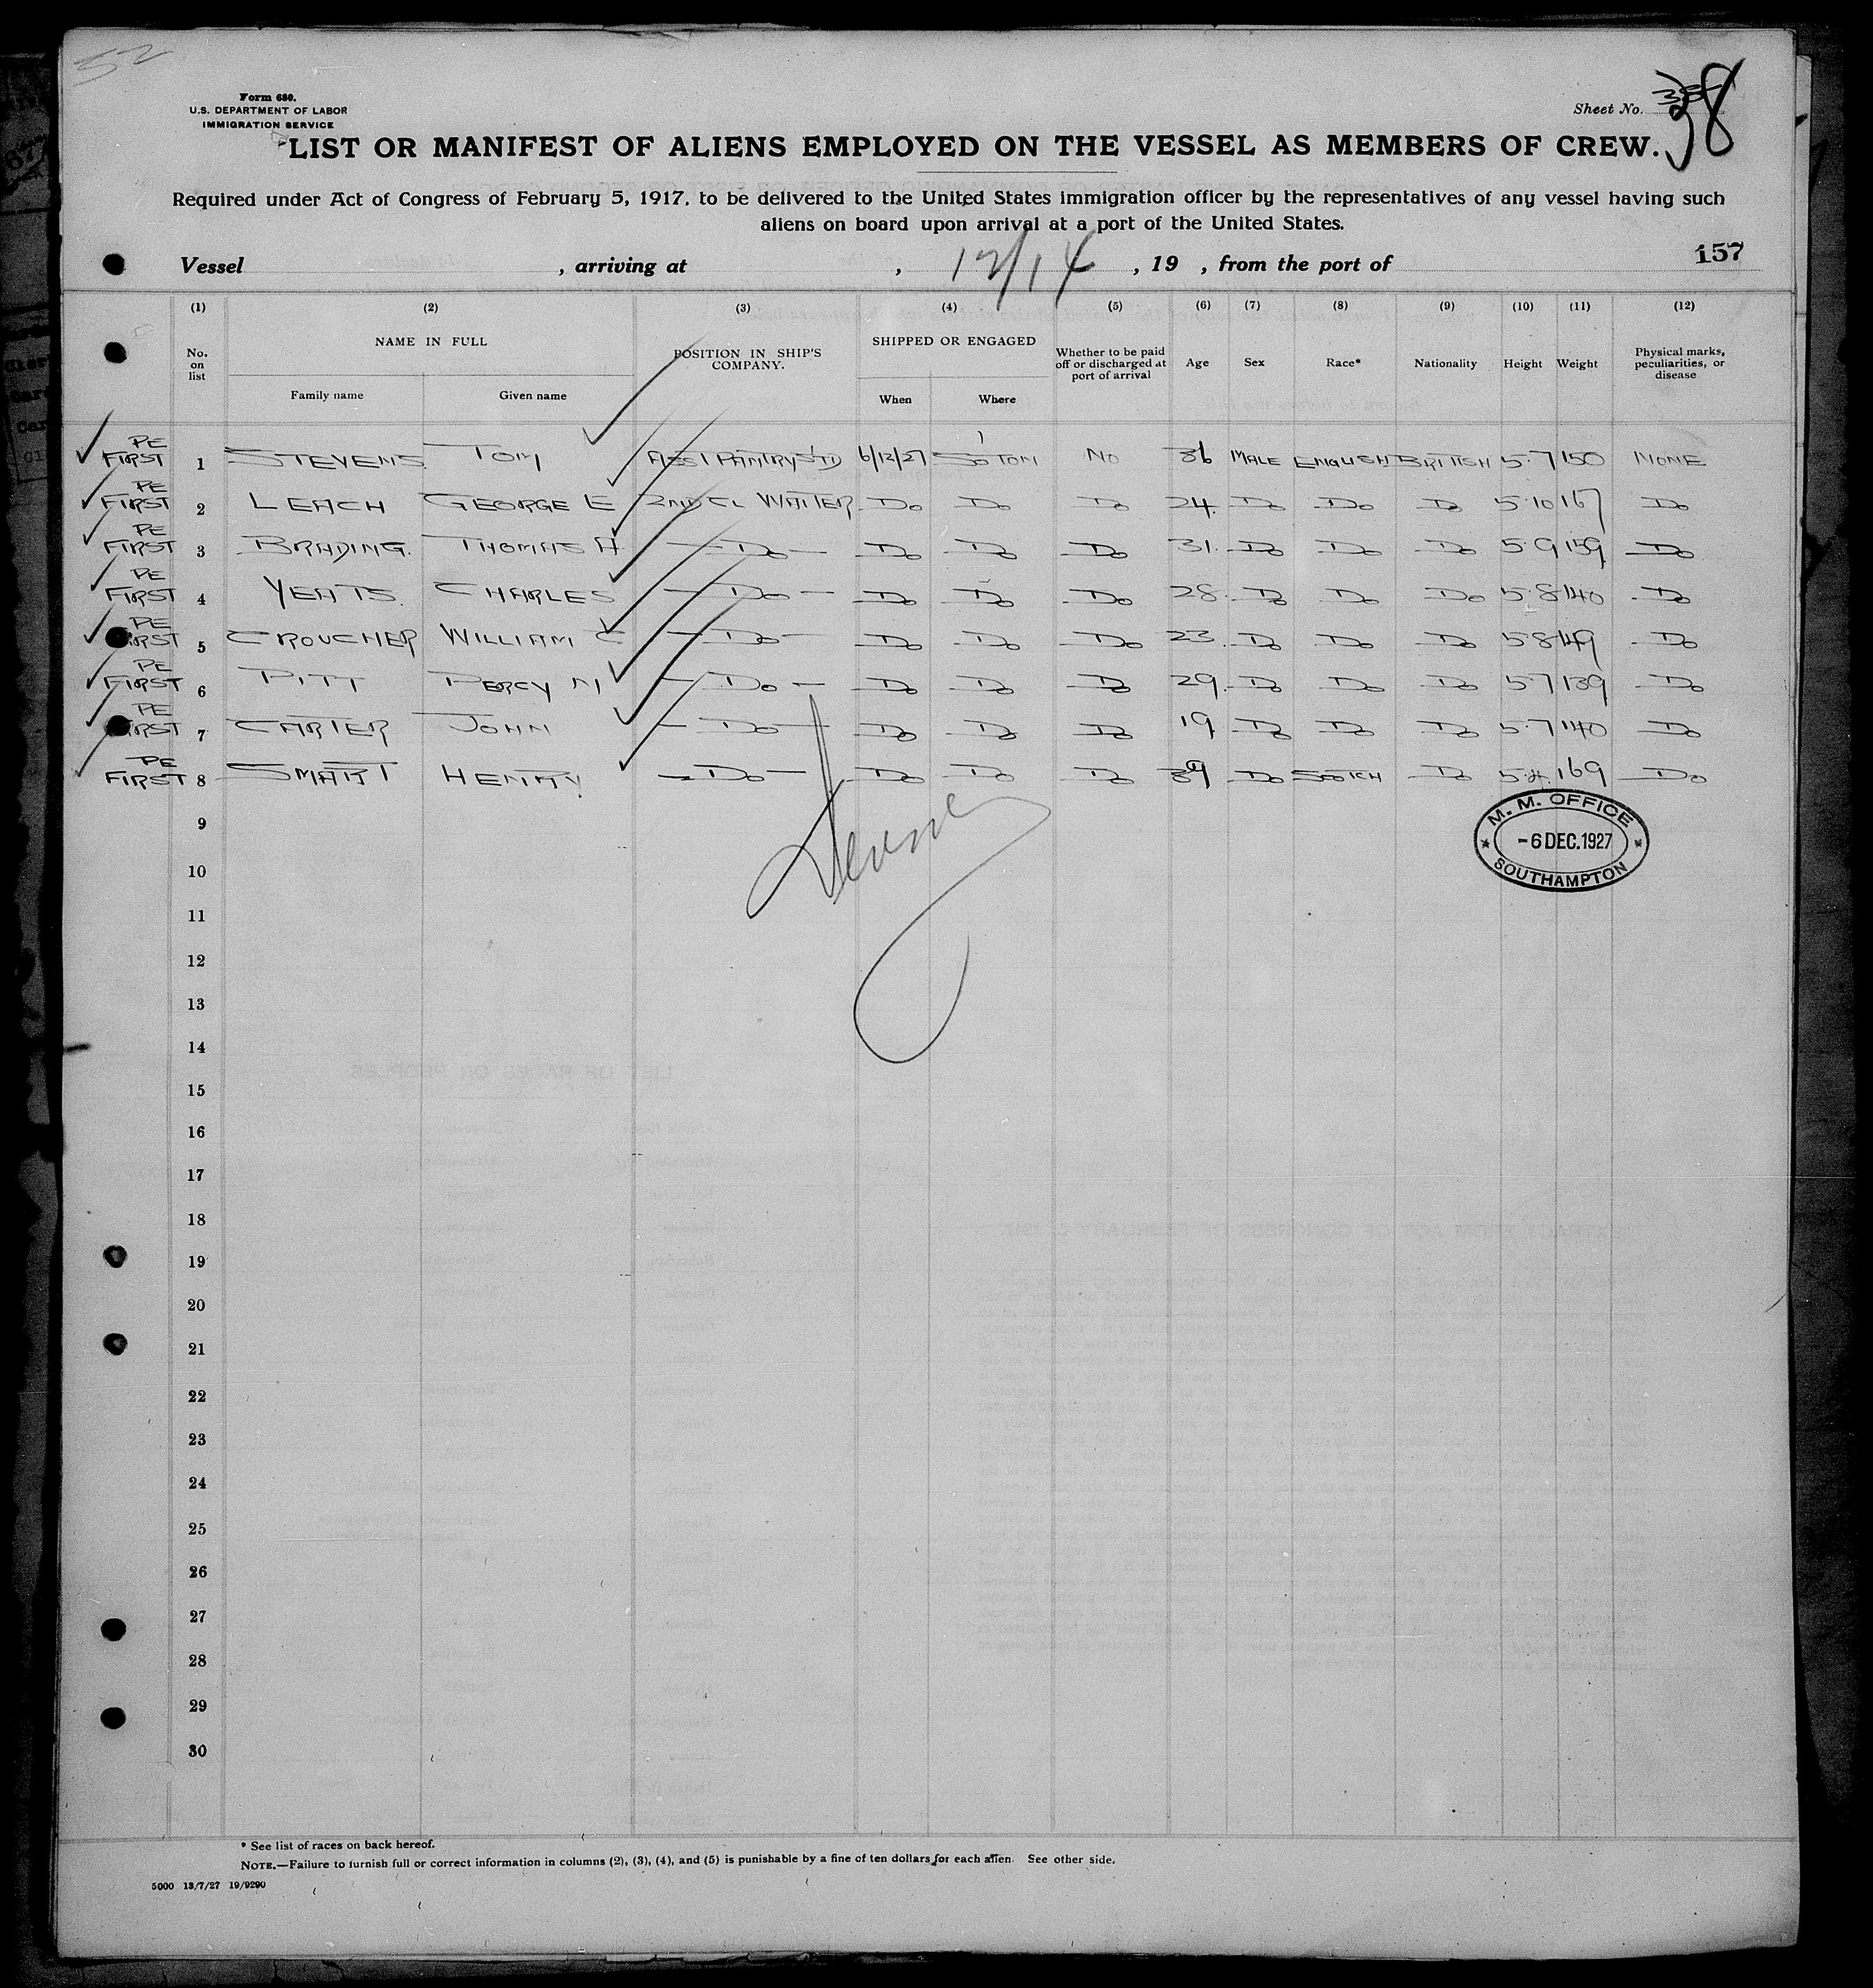 52
Form 680.
U.S. DEPARTMENT OF LABOR
IMMIGRATION SERVICE
Sheet No. 38
LIST OR MANIFEST OF ALIENS EMPLOYED ON THE VESSEL AS MEMBERS OF CREW.
Required under Act of Congress of February 5, 1917, to be delivered to the United States immigration officer by the representatives of any vessel having such
aliens on board upon arrival at a port of the United States.
Vessel , arriving at , 12/14 , 19 , from the port of 157
(1) (2) (3) (4) (5) (6) (7) (8) (9) (10) (11) (12)
No. on list NAME IN FULL Family name Given name POSITION IN SHIP'S COMPANY. SHIPPED OR ENGAGED When Where Whether to be paid off or discharged at port of arrival Age Sex Race* Nationality Height Weight Physical marks, peculiarities, or disease
PE FIRST 1 STEVENS TOM ASST PANTRYSTD 6/12/27 SO TON NO 36 MALE ENGLISH BRITISH 5.7 150 NONE
PE FIRST 2 LEACH GEORGE E 2ND CL WAITER Do Do Do 24. Do Do Do 5.10 167 Do
PE FIRST 3 BRADING. THOMAS H. - Do - Do Do Do 31. Do Do Do 5.9 159 Do
PE FIRST 4 YEATS. CHARLES - Do - Do Do Do 28. Do Do Do 5.8 140 Do
PE FIRST 5 CROUCHER WILLIAM C - Do - Do Do Do 23. Do Do Do 5.8 149 Do
PE FIRST 6 PITT PERCY M - Do - Do Do Do 29. Do Do Do 5.7 139 Do
PE FIRST 7 CARTER JOHN - Do - Do Do Do 19 Do Do Do 5.7 140 Do
PE FIRST 8 SMART HENRY - Do - Do Do Do 39 Do SCOTCH Do 5.4. 169 Do
M. M. OFFICE
-6 DEC. 1927
SOUTHAMPTON
9
10
11
12
13
14
15
16
17
18
19
20
21
22
23
24
25
26
27
28
29
30
* See list of races on back hereof.
NOTE.—Failure to furnish full or correct information in columns (2), (3), (4), and (5) is punishable by a fine of ten dollars for each alien. See other side.
5000 13/7/27 19/9290